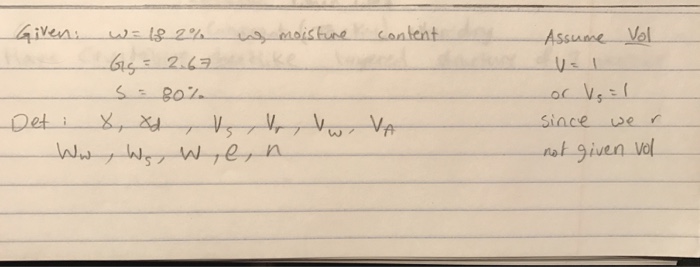 Given: w = 18.2% w, moisture content
Gs = 2.67
S = 80%
Det: γ, γd, Vs, Vv, Vw, VA
Ww, Ws, W, e, n
Assume Vol
V = 1
or Vs = 1
since we r
not given vol